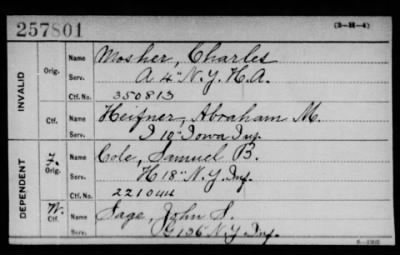 257801 (3-H-4)
INVALID Orig. Name Mosher, Charles
Serv. A 4" N.Y.H.A.
Ctf. No. 350813
Ctf. Name Heifner, Abraham M.
Serv. I 10" Iowa Inf.
DEPENDENT Orig. Name Cole, Samuel B.
Serv. H 18" N.Y. Inf.
Ctf. No.
W. Ctf. Name Sage, John S.
Serv. G 136" N.Y. Inf.